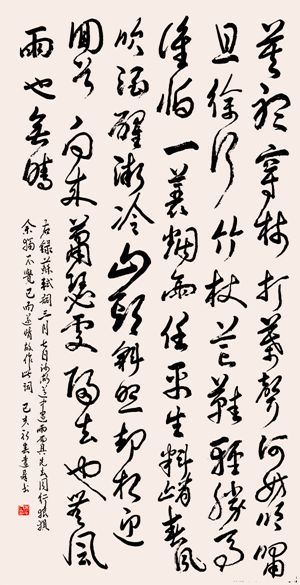 莫聽穿林打葉聲何妨吟嘯
且徐行竹杖芒鞋輕勝馬
誰怕一蓑烟雨任平生料峭春風
吹酒醒微冷山頭斜照却相迎
回首向来蕭瑟處歸去也無風
雨也無晴
右録蘇軾詞三月七日沙湖道中遇雨雨具先去同行狼狽
余獨不覺已而遂晴故作此詞 己亥初春書